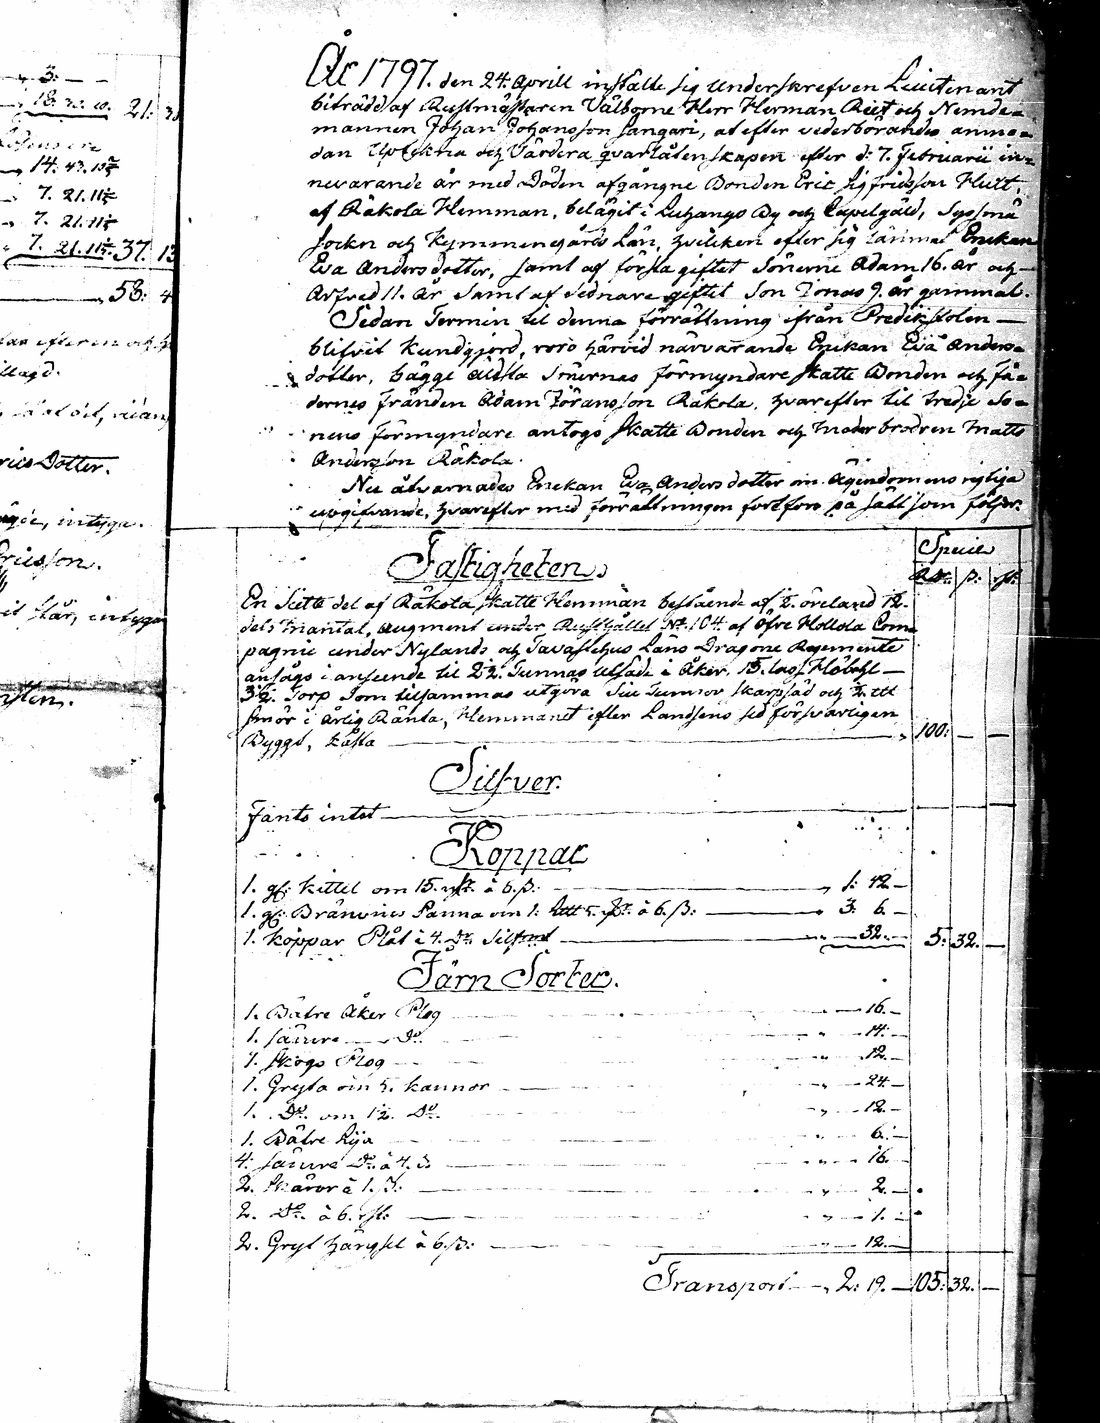 3: —
18: 32. 10. 21:
14: 43. 10
7. 21. 11
7. 21. 11
7. 21. 11 37. 13
58: 4
efter en och
at det, vidare
Dotter.
intyga.
Ericsson.
står, intygar
År 1797. den 24. Aprill instälte sig underskrefven Lieutenant
biträdd af Rustmästaren Välborne Herr Herman Reet och Nemde-
mannen Johan Johansson Langari, at efter vederbörandes anmo-
dan Uptekna och Värdera qvarlåtenskapen efter d: 7. Februarii in-
nevarande år med Döden afgångne Bonden Eric Sigfridsson Hutt,
af Räkola Hemman, belägit i Luhango By och Capelgäld, Sysmä
Sockn och Kymmenegårds Län, hvilken efter sig lämnat Enckan
Eva Andersdotter, samt af första giftet Sönerne Adam 16. År och
Arfved 11. År samt af sednare giftet Son Jonas 9. år gammal.
Sedan Termin til denna förrättning ifrån Predikstolen
blifvit Kundgjord, voro härvid närvarande Enckan Eva Anders-
dotter, bägge äldsta Sönernas förmyndare Skatte Bonden och Fä-
dernes fränden Adam Jöransson Räkola, hvarefter til tredje So-
nens förmyndare antogs Skatte Bonden och Moderbrodren Matts
Andersson Räkola.
Nu åtvarnades Enckan Eva Andersdotter om Ägendomens rigtiga
upgifvande, hvarefter med förrättningen fortfors på sätt som följer:
Specie
Fastigheten. Rdr. ß. rst.
En Siette del af Räkola Skatte Hemman bestående af 2. öreland 12.
dels Mantal, augment under Rusthållet N: 104. af Öfre Hollola Com-
pagnie under Nylands och Tavastehus Läns Dragone Regemente
ansågs i anseende til 2½. Tunnas Utsäde i Åker, 15. lass Höbohl
3½. Torp som tilsammans utgöra Siu Tunnor skarpsäd och ½. Ltt
Smör i årlig Ränta, Hemmanet efter Landsens sed försvarligen
Bygdt, kåsta — " 100: — —
Silfver.
Fants intet
Koppar
1. gl: Kittel om 15. à 6. ß: — " 1: 42. —
1. gl: Bränvins Panna om 1: Ltt 5. à 6. ß: — " 3: 6. —
1. koppar Plåt à 4. Dr. Silfmt — " 32. — 5: 32. —
Järn Sorter.
1. Bätre Åker Plog — " 16. —
1. sämre Do — " 14. —
1. Skogs Plog — " 12. —
1. Gryta om 5. kannor — " 24. —
1. Do. om 1½. Do. — " 12. —
1. Bätre Lija — " 6. —
4. sämre Do. à 4. ß. — " 16. —
2. Skäror à 1. ß: — " 2. —
2. Do. à 6. rst: — " 1. —
2. Gryt hängsel à 6. ß: — " 12. —
Transport — " 2: 19. — 105: 32. —